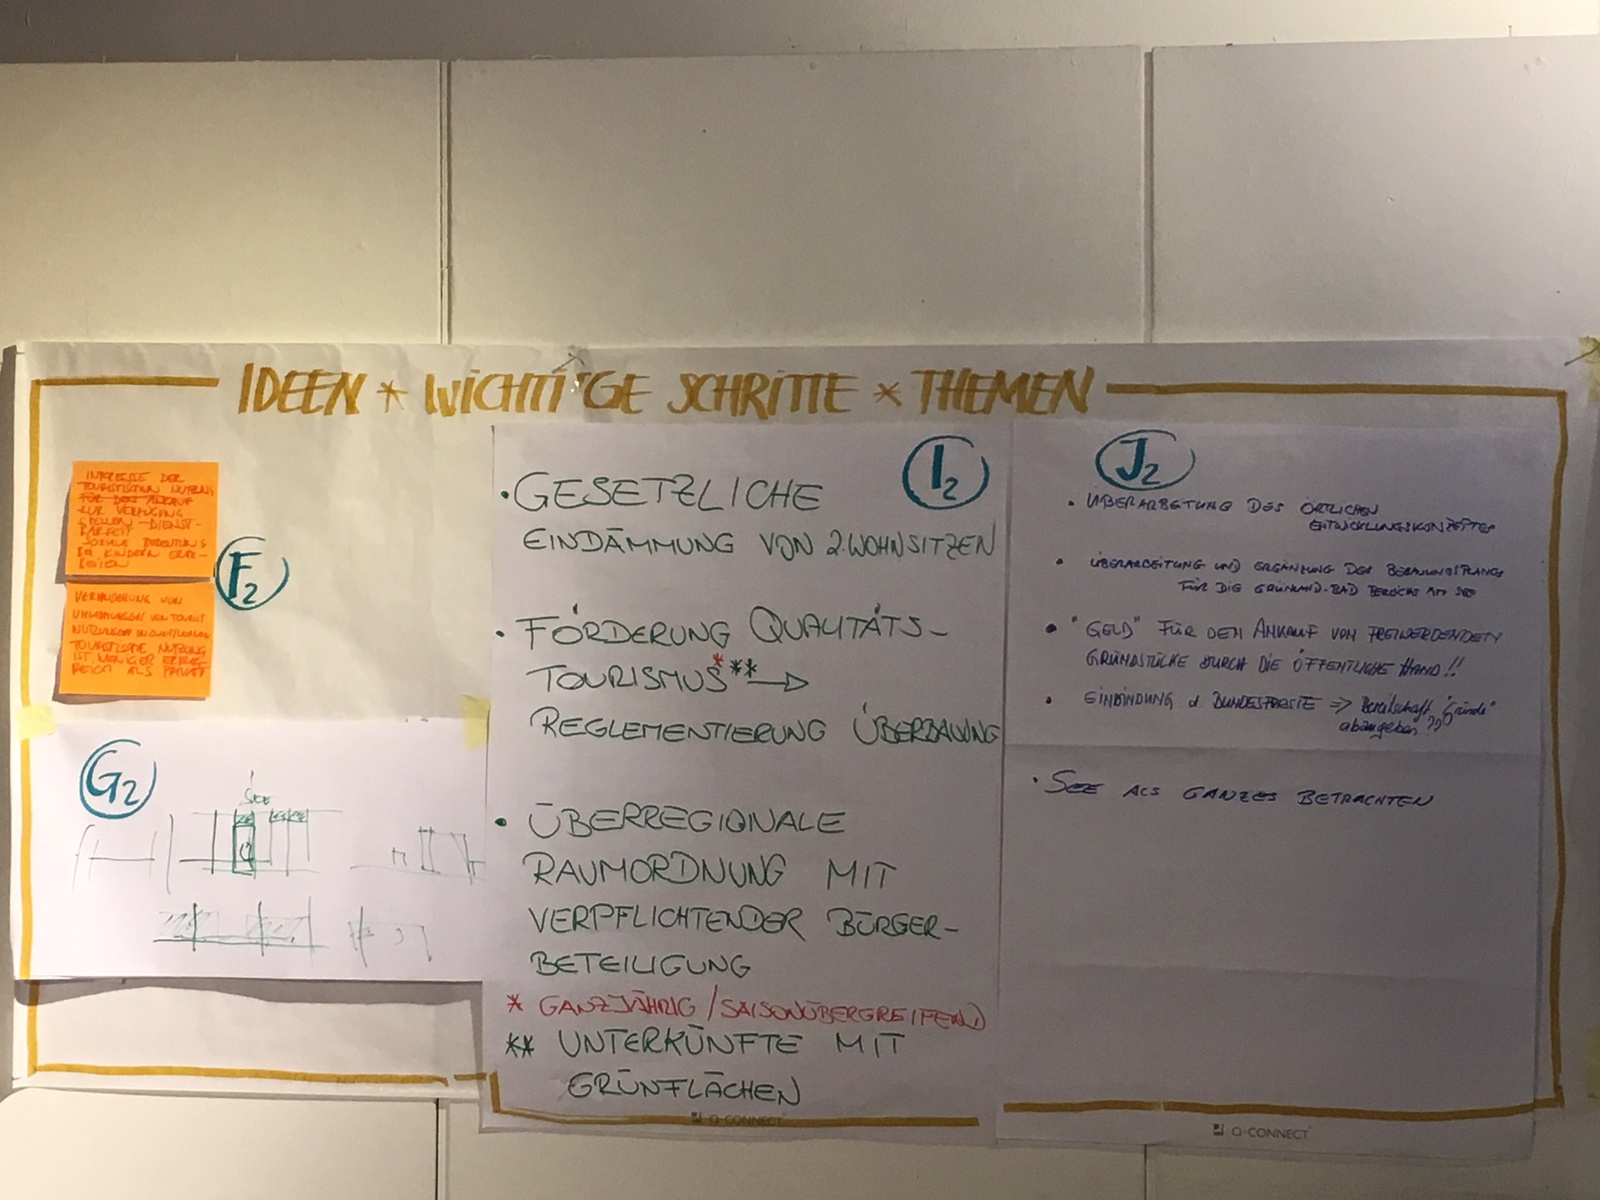 IDEEN * WICHTIGE SCHRITTE * THEMEN
INTERESSE DER
TOURISTISCHEN NUTZUNG
FÜR DEN ANKAUF
ZUR VERFÜGUNG
STELLEN - DIENST-
BARKEIT
SOZIALE
BEI KINDERN
F2
VERÄNDERUNG VON
UMWIDMUNGEN VON TOURIST
NUTZUNGEN IN
TOURISTISCHE NUTZUNG
IST WENIGER ERTRAG-
REICH ALS PRIVAT
G2
SEE
I2
• GESETZLICHE
EINDÄMMUNG VON 2.WOHNSITZEN
• FÖRDERUNG QUALITÄTS-
TOURISMUS * ** →
REGLEMENTIERUNG ÜBERBAUUNG
• ÜBERREGIONALE
RAUMORDNUNG MIT
VERPFLICHTENDER BÜRGER-
BETEILIGUNG
* GANZJÄHRIG / SAISONÜBERGREIFEND
** UNTERKÜNFTE MIT
GRÜNFLÄCHEN
Q-CONNECT
J2
• ÜBERARBEITUNG DES ÖRTLICHEN
ENTWICKLUNGSKONZEPTES
• ÜBERARBEITUNG UND ERGÄNZUNG DES BEBAUUNGSPLANS
FÜR DIE GRÜNLAND-BAD BEREICHE AM SEE
• "GELD" FÜR DEN ANKAUF VON FREIWERDENDEN
GRUNDSTÜCKE DURCH DIE ÖFFENTLICHE HAND!!
• EINBINDUNG d BUNDESFORSTE => Bereitschaft "Gründe"
abzugeben ??
• SEE ALS GANZES BETRACHTEN
Q-CONNECT